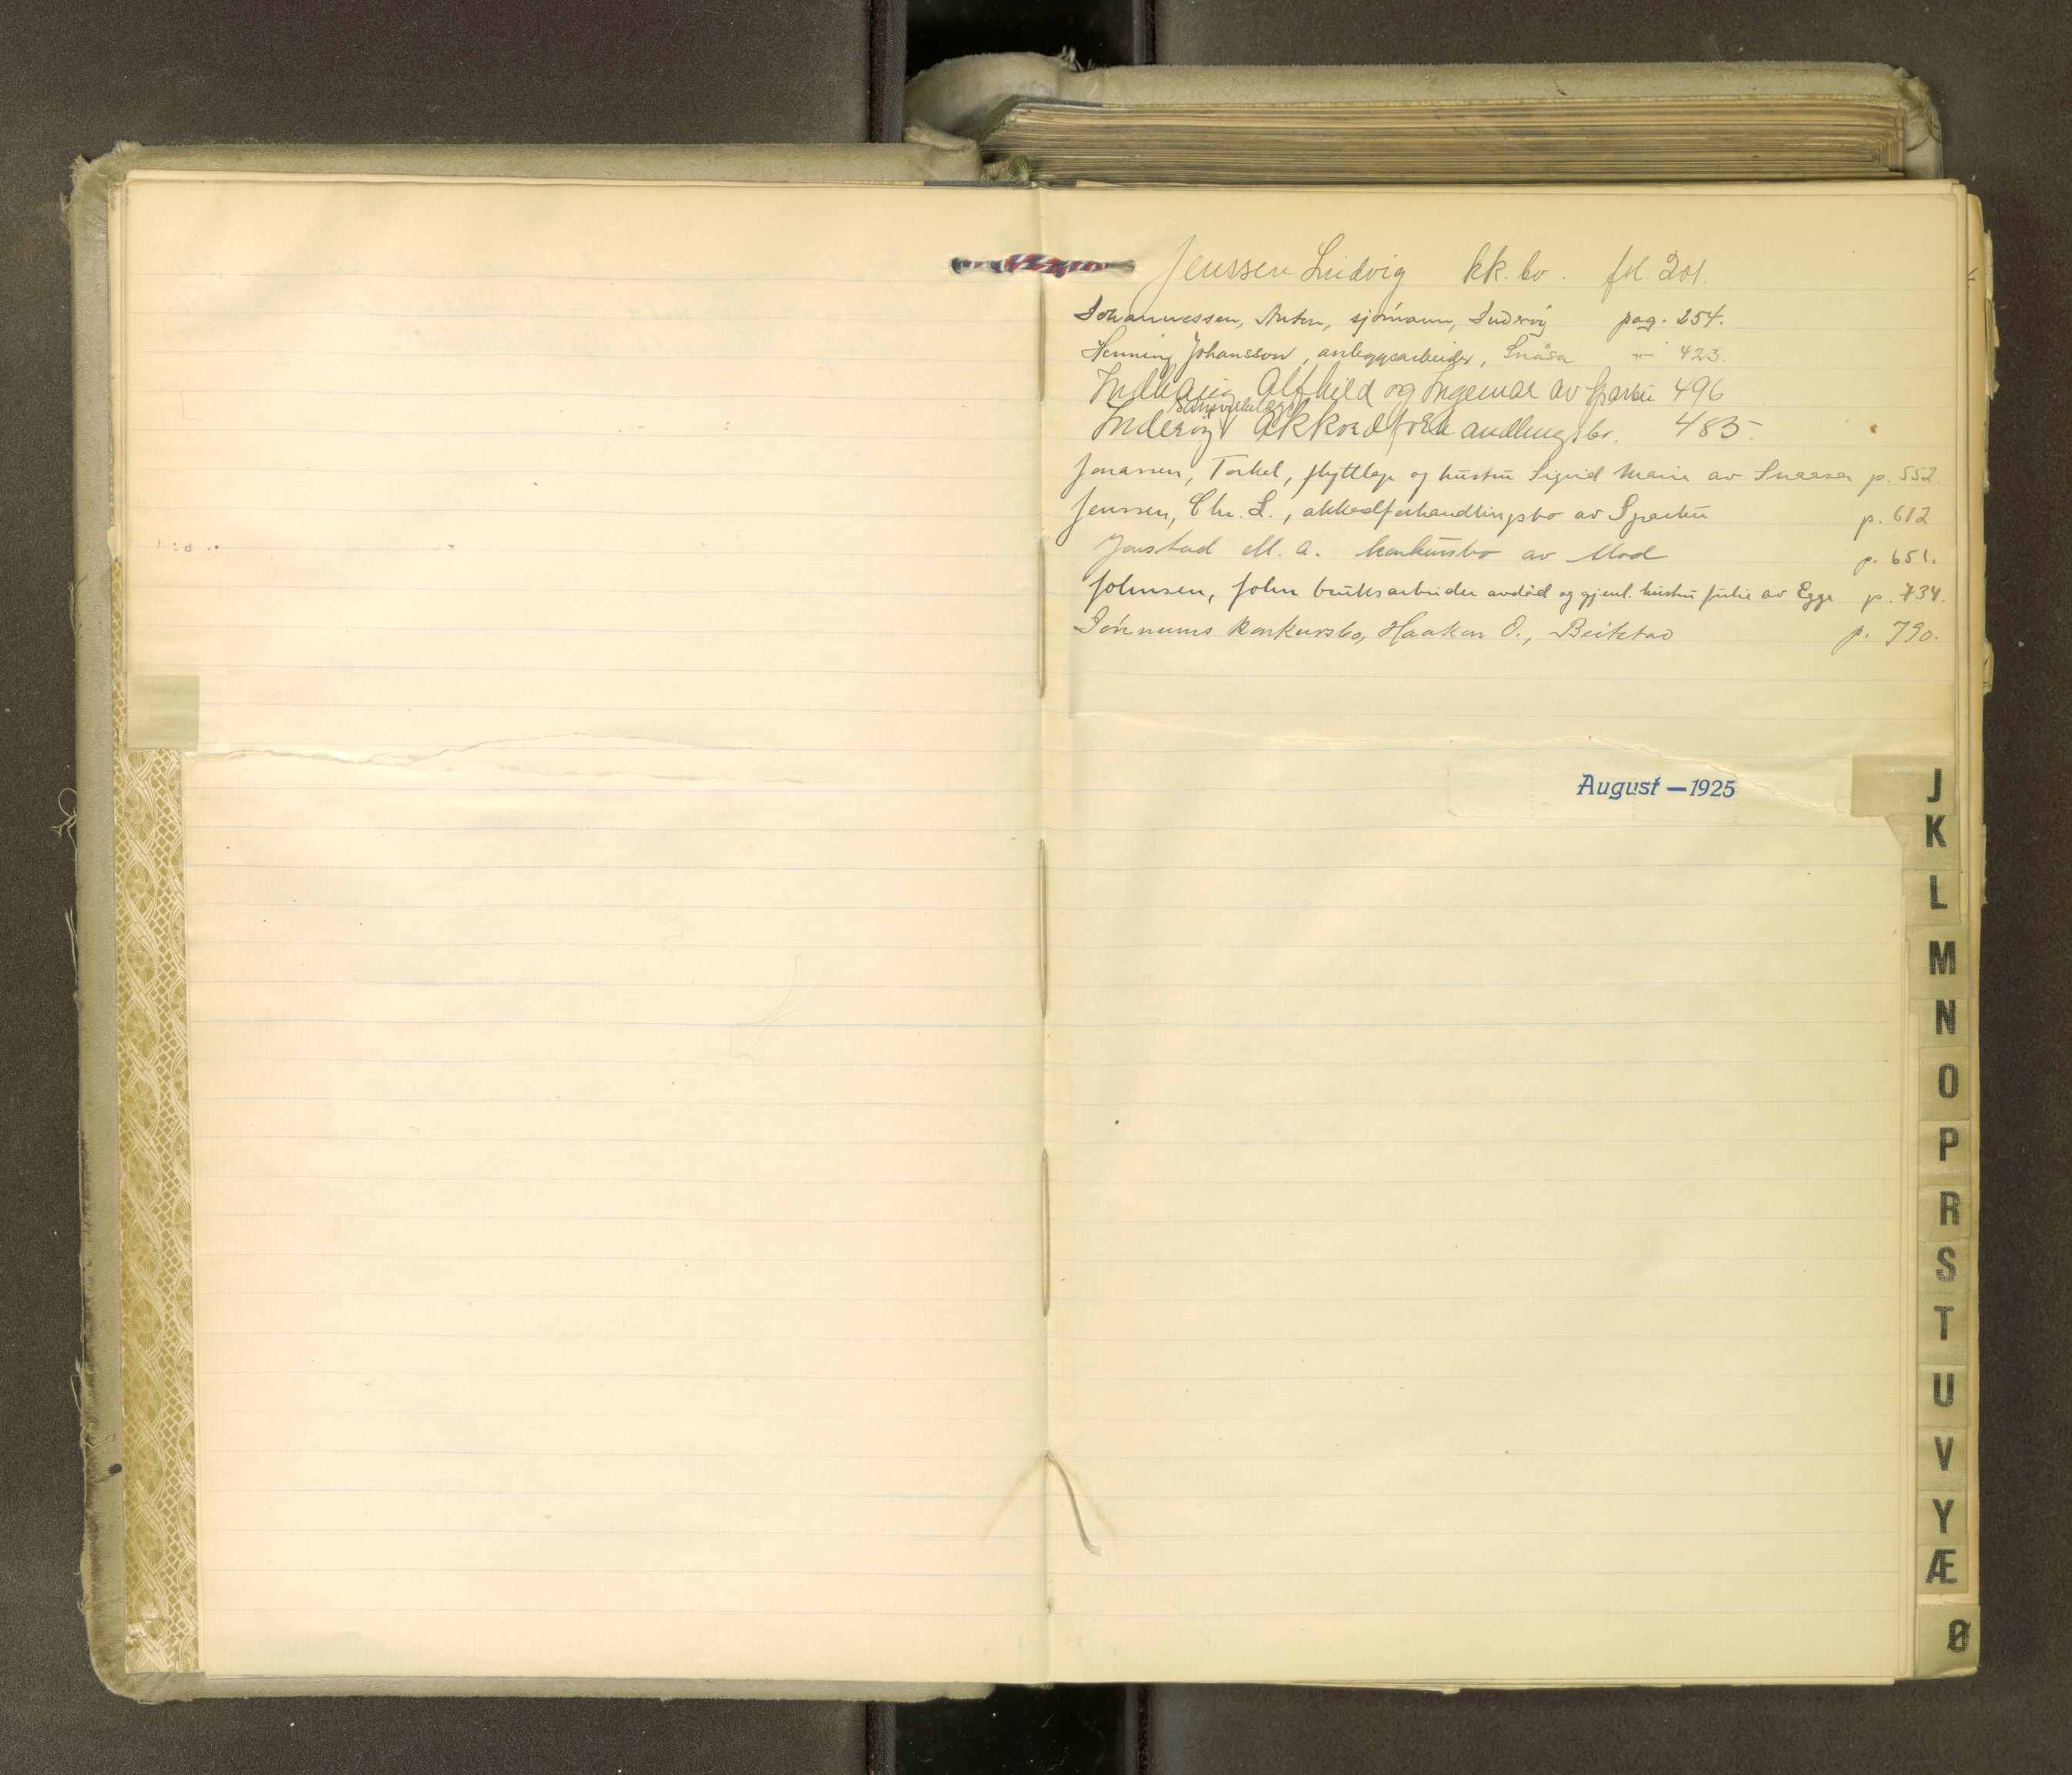 Jenssen Ludvig kk. bo. fol. 201.
Johannessen, Anton, sjömann, Inderöy pag. 254.
Henning Johansson, anleggsarbeider, Snåsa -"- 423.
Alfhild og Ingemar av Sparbu 496
Samvirkelags
Inderöy Akkordforhandlingsbo. 485.
Jonassen, Torkel, flyttlap og hustru Sigrid Marie av Snaasa p. 552.
Jenssen, Chr. L., akkordforhandlingsbo av Sparbu p. 612
Jonstad M. A. konkursbo av Stod p. 651.
Johnsen, John bruksarbeider avdöd og gjenl. hustru Julie av Egge p. 734.
Jörnums konkursbo, Haakon O., Beitstad p. 790.
August — 1925
J
K
L
M
N
O
P
R
S
T
U
V
Y
Æ
Ø